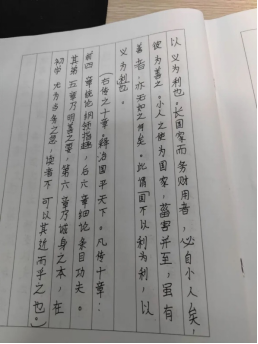 以义为利也。长国家而务财用者，必自小人矣，
彼为善之。小人之使为国家，菑害并至，虽有
善者，亦无如之何矣。此谓国不以利为利，以
义为利也。
（右传之十章。释治国平天下。凡传十章：
前四章统论纲领指趣，后六章细论条目功夫。
其第五章乃明善之要，第六章乃诚身之本，在
初学尤为当务之急，读者不可以其近而忽之也。）